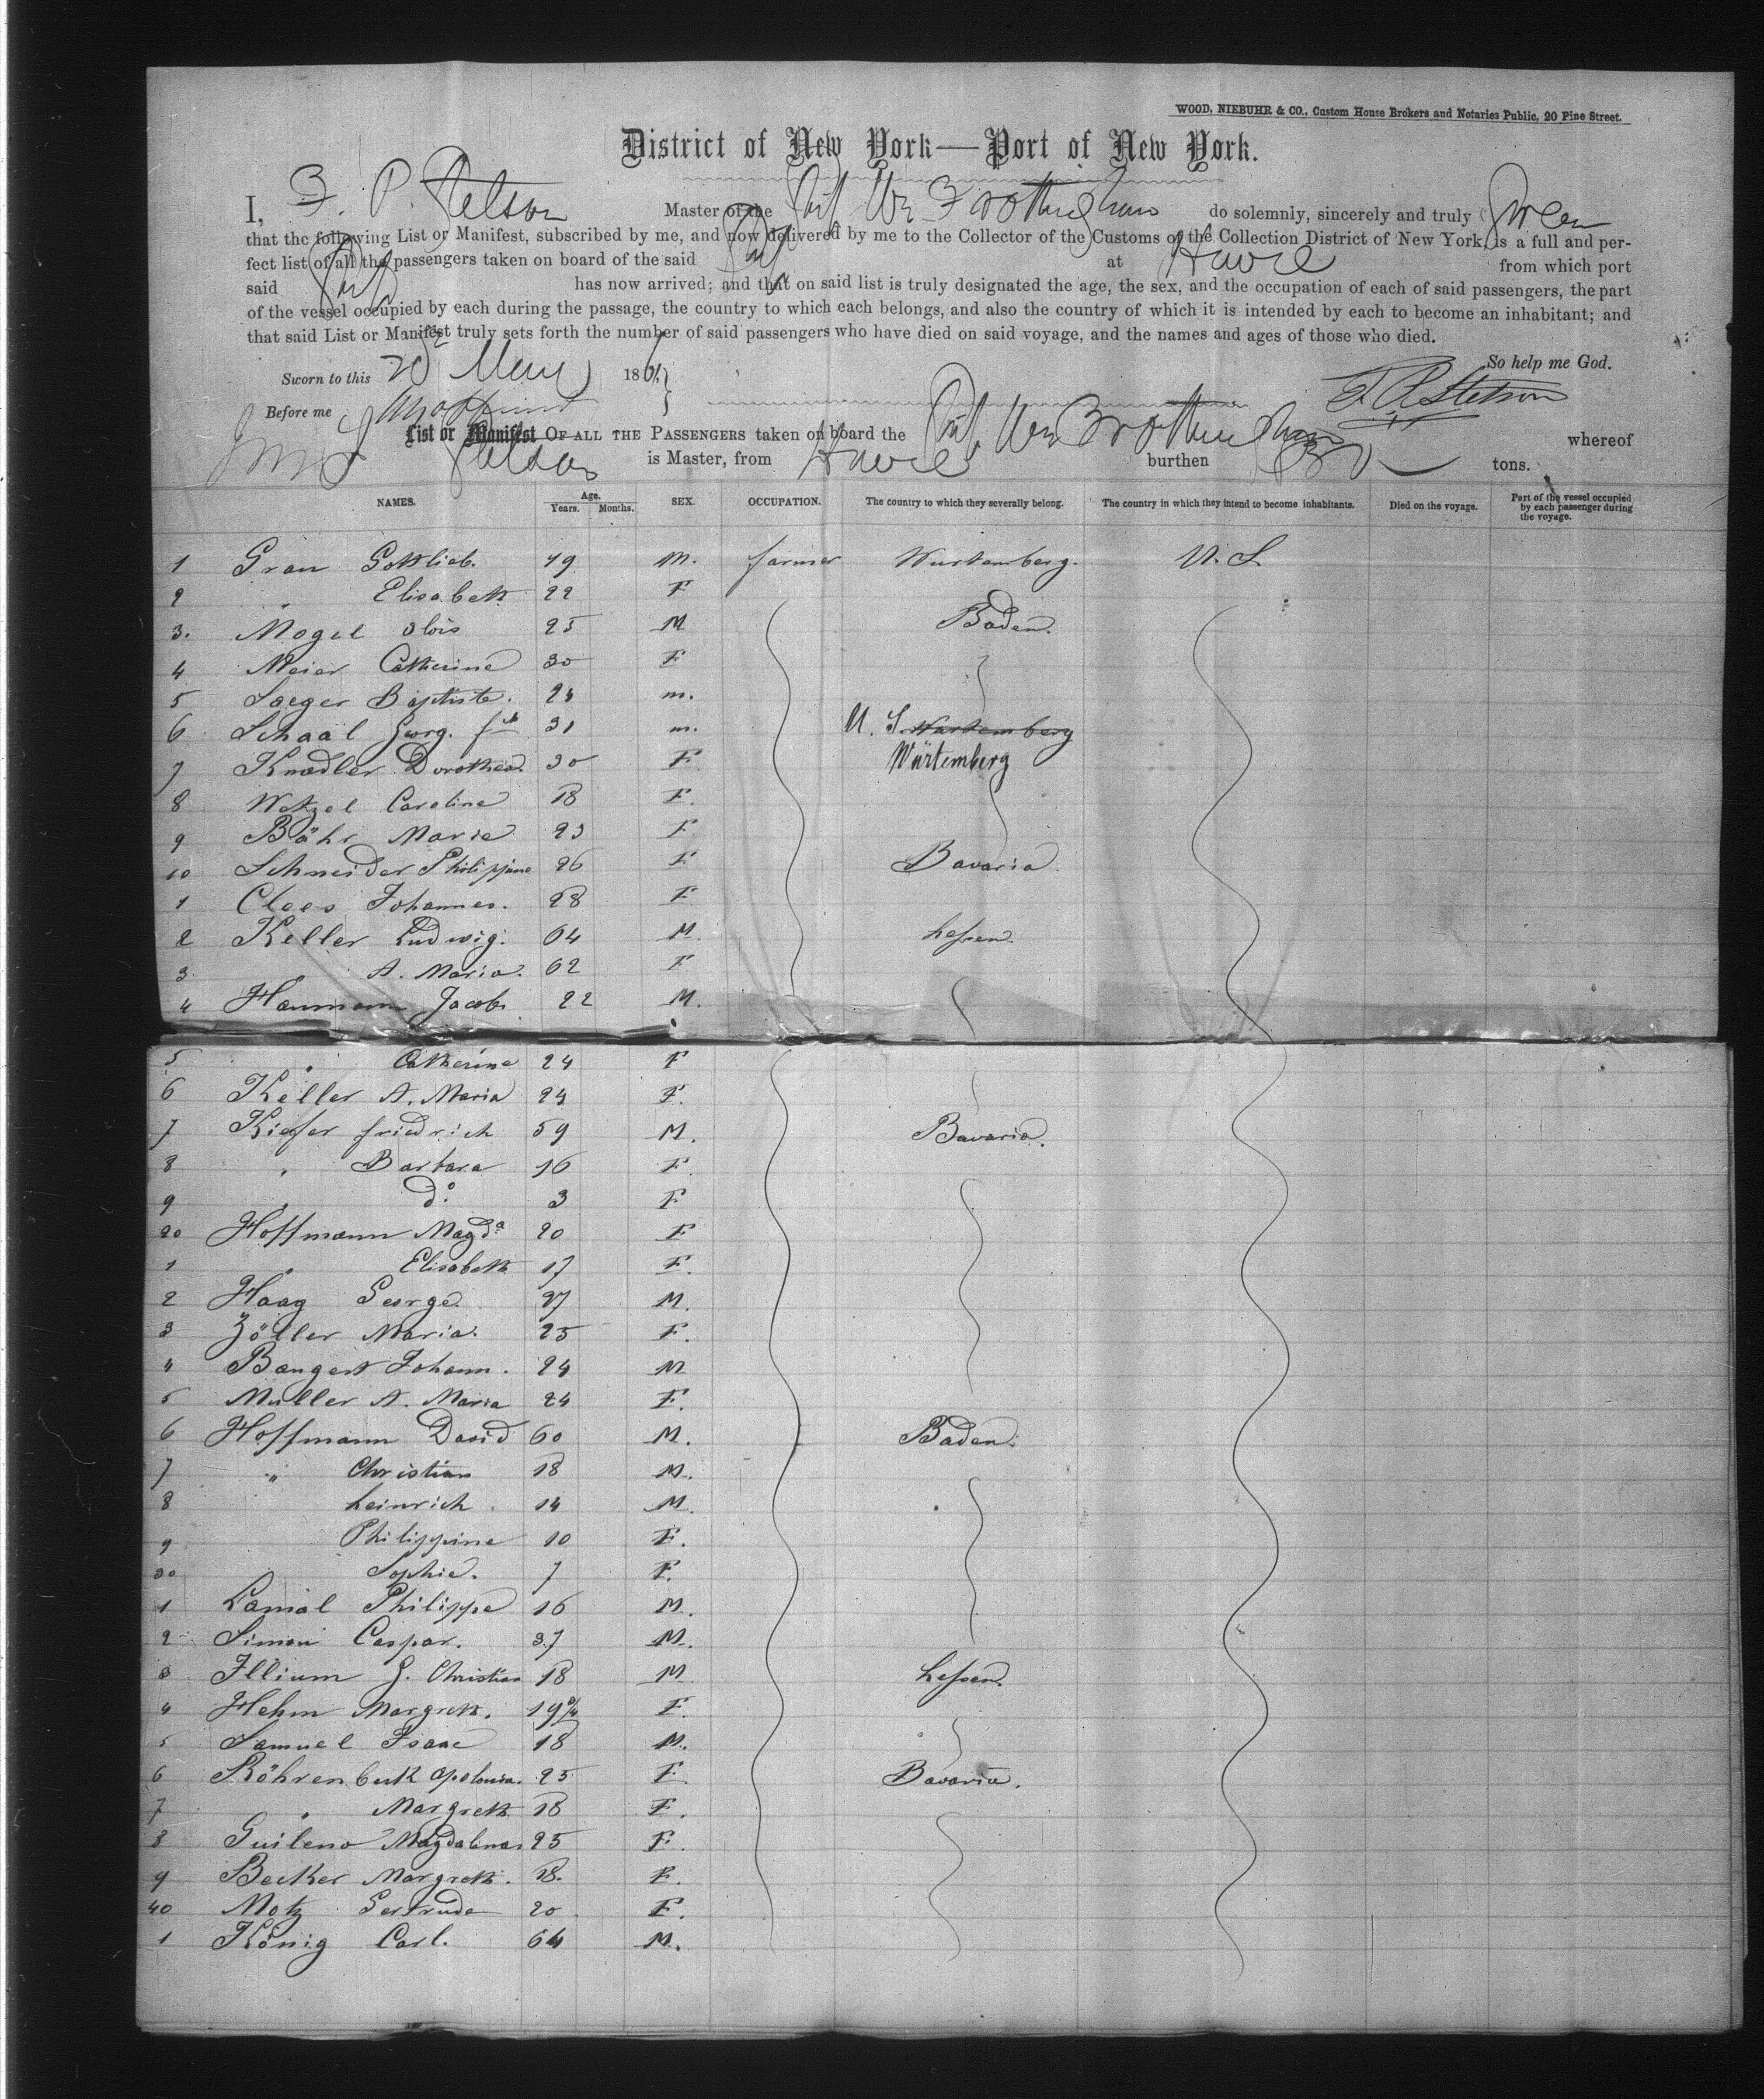 WOOD, NIEBUHR & CO., Custom House Brokers and Notaries Public, 20 Pine Street.
District of New York—Port of New York.
I, F. P. Stetson Master of the Wm Frothingham do solemnly, sincerely and truly swear
that the following List or Manifest, subscribed by me, and now delivered by me to the Collector of the Customs of the Collection District of New York, is a full and per-
fect list of all the passengers taken on board of the said at Havre from which port
said has now arrived; and that on said list is truly designated the age, the sex, and the occupation of each of said passengers, the part
of the vessel occupied by each during the passage, the country to which each belongs, and also the country of which it is intended by each to become an inhabitant; and
that said List or Manifest truly sets forth the number of said passengers who have died on said voyage, and the names and ages of those who died.
So help me God.
Sworn to this 20 May 186
F. P. Stetson
Before me
List or Manifest OF ALL THE PASSENGERS taken on board the Wm Frothingham whereof
Stetson is Master, from Havre burthen tons.
NAMES. Age. Years. Months. SEX. OCCUPATION. The country to which they severally belong. The country in which they intend to become inhabitants. Died on the voyage. Part of the vessel occupied by each passenger during the voyage.
1 Grau Gottlieb. 49 M. farmer Wurtemberg. U. S.
2 " Elisabeth 22 F
3. Mogel Alois 25 M Baden.
4 Meier Catherine 30 F
5 Saeger Baptiste. 24 m.
6 Schaal Georg. 31 m. U. S. Wurtemberg
7 Knædler Dorothea. 30 F Würtemberg
8 Wetzel Caroline 18 F.
9 Bähr Marie 23 F
10 Schneider Philippine 26 F Bavaria.
1 Clees Johannes. 28 F
2 Keller Ludwig. 64 M. hessen.
3 A. Maria. 62 F
4 Haumann Jacob 22 M.
5 " Catherine 24 F
6 Keller A. Maria 24 F.
7 Kiefer friedrich 59 M. Bavaria.
8 " Barbara 16 F.
9 " do. 3 F
20 Hoffmann Magda 20 F
1 " Elisabeth 17 F.
2 Haag George. 27 M.
3 Zöller Maria. 25 F.
4 Bangert Johann. 24 M
5 Muller A. Maria 24 F.
6 Hoffmann David 60 M. Baden.
7 " Christian 18 M.
8 heinrich. 14 M.
9 Philippine 10 F.
30 Sophie. 7 F.
1 Lamal Philippe 16 M.
2 Simon Caspar. 37 M.
3 Illium J. Christian 18 M hessen.
4 Hehm Margreth. 19 F.
5 Samuel Isaac 18 M.
6 Röhrenbeck Apolonia. 25 F. Bavaria.
7 " Margreth 18 F.
8 Guileno Magdalena 25 F.
9 Becker Margreth. 18. F.
40 Motz Gertrude 20 F.
1 König Carl. 64 M.